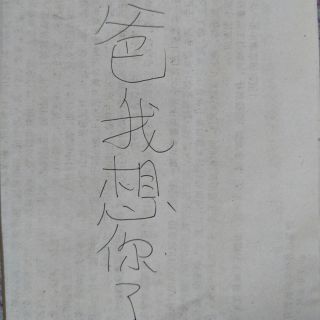 爸我想你了